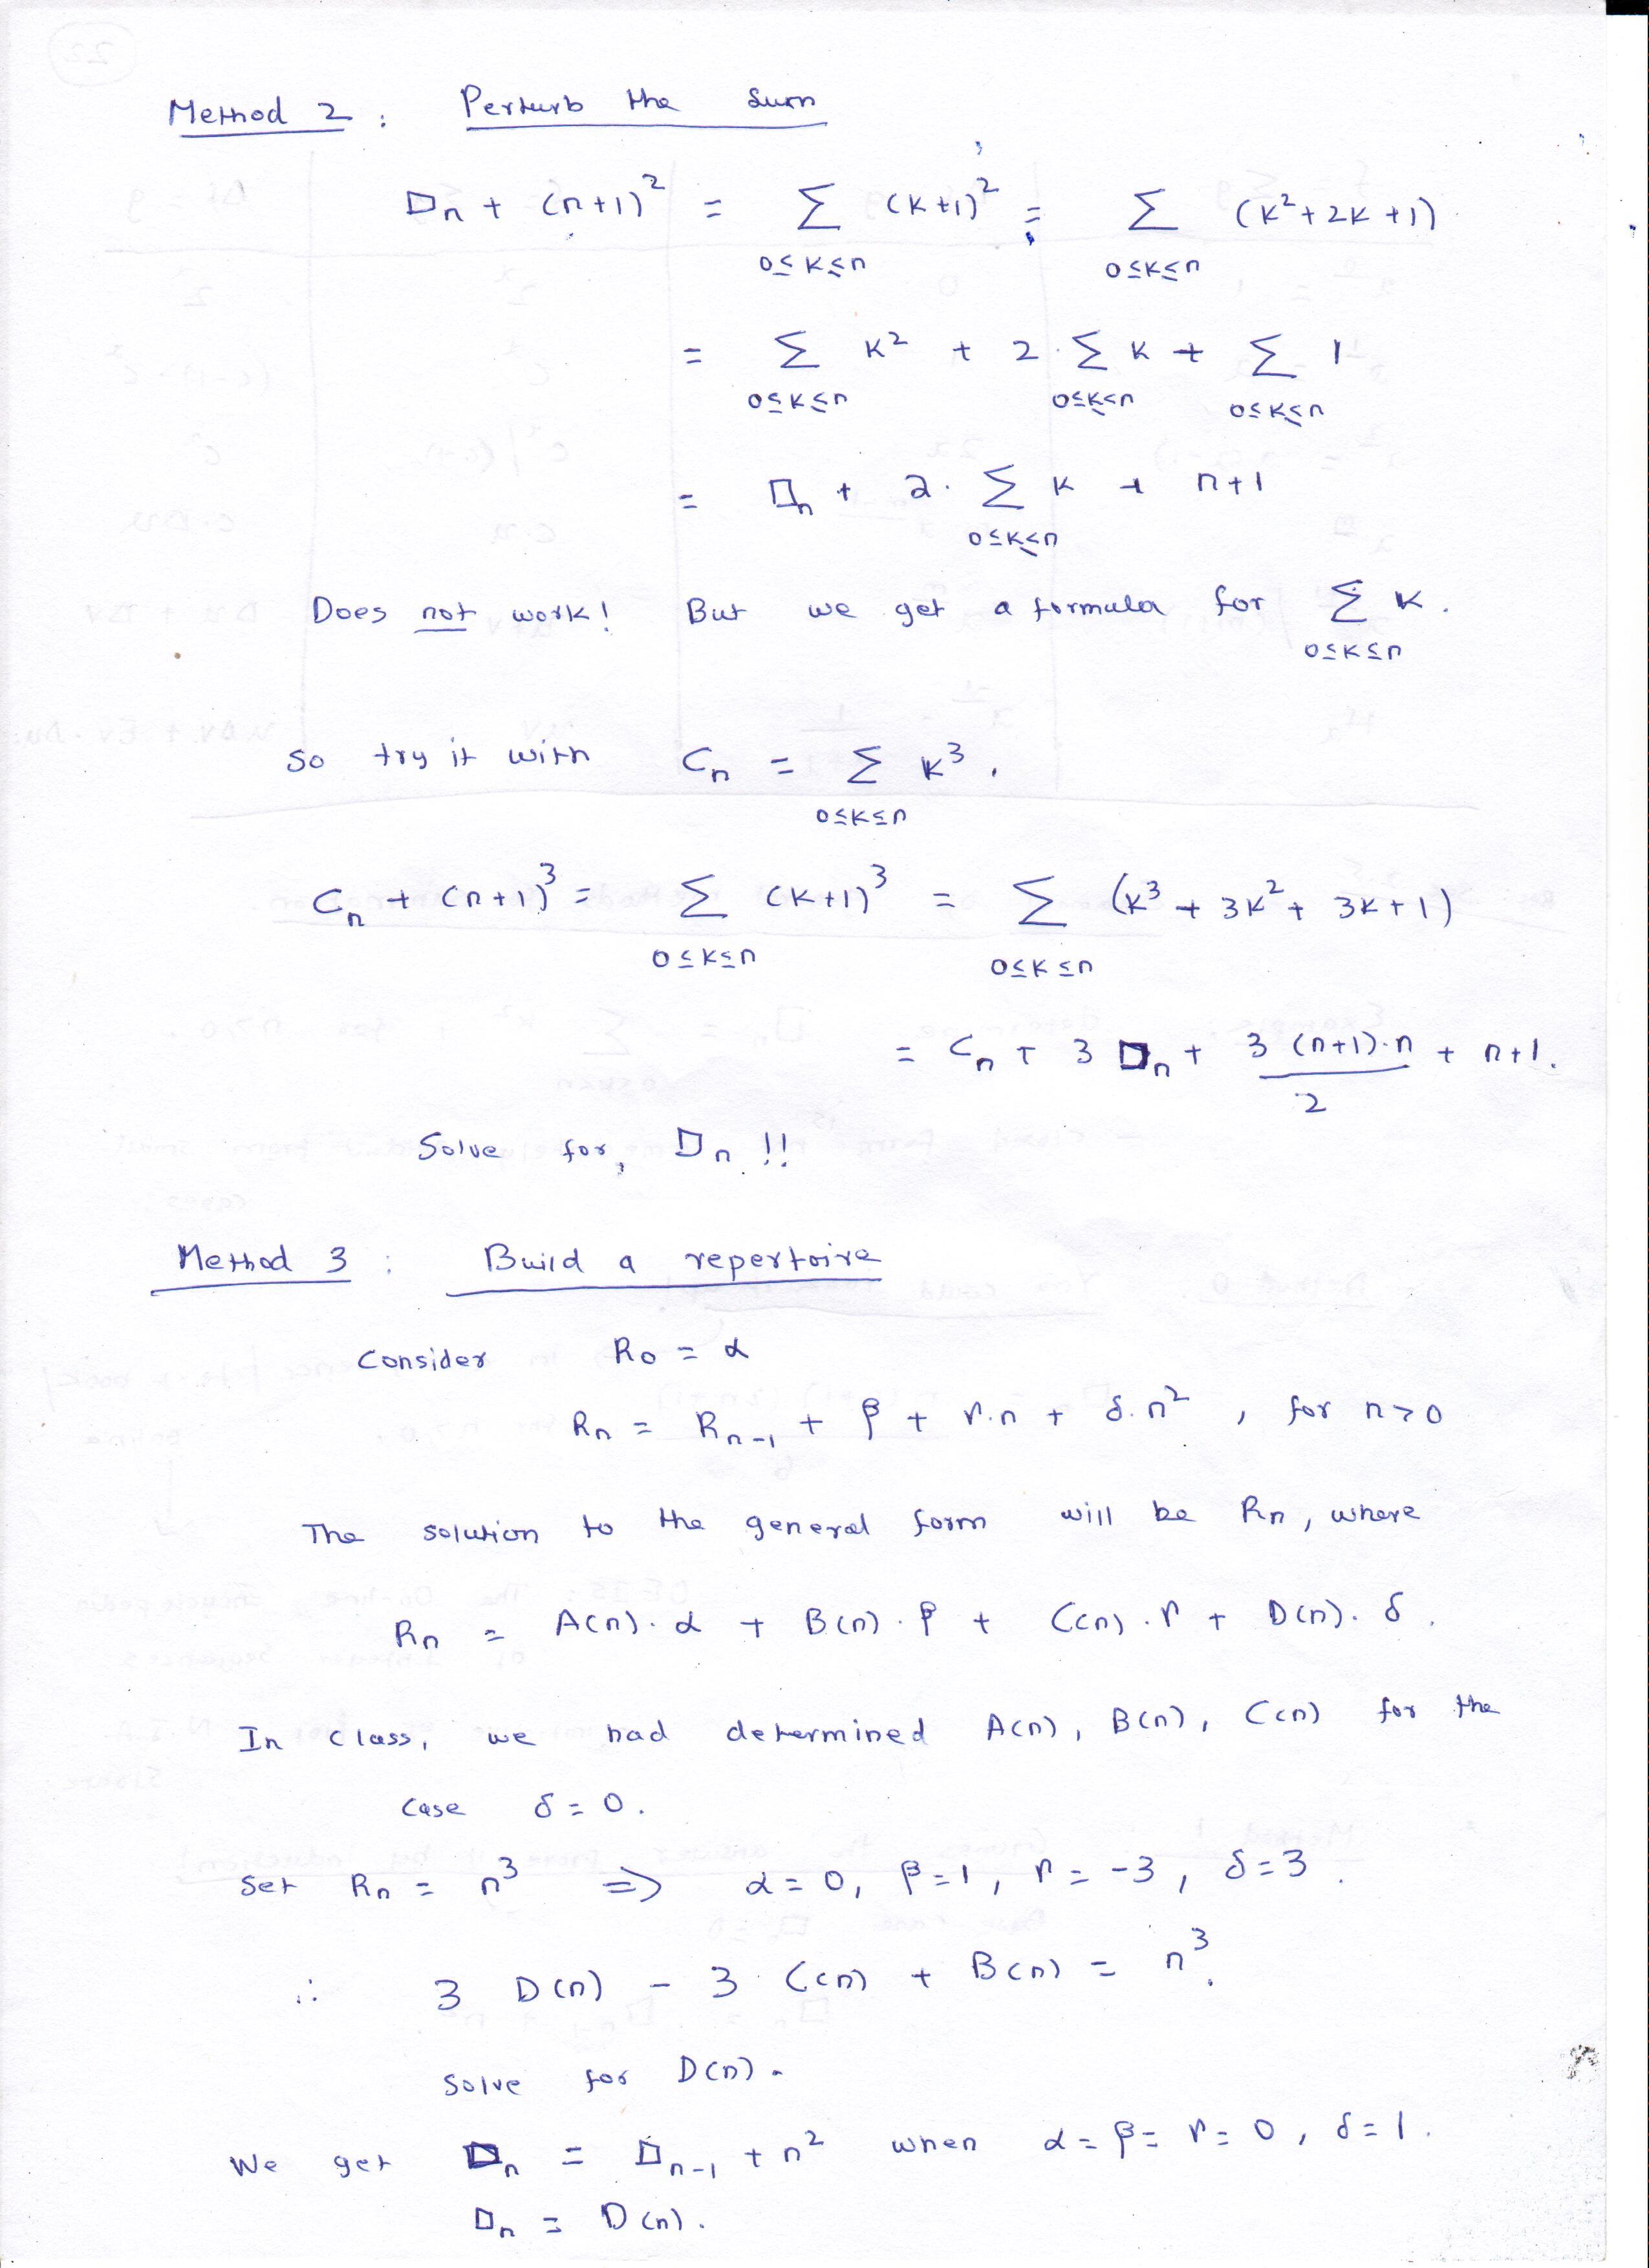 Method 2 : Perturb the Sum
□n + (n+1)² = Σ (k+1)² = Σ (k²+2k+1)
0≤k≤n 0≤k≤n
= Σ k² + 2·Σ k + Σ 1
0≤k≤n 0≤k≤n 0≤k≤n
= □n + 2·Σ k + n+1
0≤k≤n
Does not work! But we get a formula for Σ k.
0≤k≤n
So try it with Cn = Σ k³.
0≤k≤n
Cn + (n+1)³ = Σ (k+1)³ = Σ (k³ + 3k² + 3k+1)
0≤k≤n 0≤k≤n
= Cn + 3 □n + 3 (n+1)·n + n+1.
2
Solve for □n !!
Method 3 : Build a repertoire
Consider R0 = α
Rn = Rn-1 + β + γ·n + δ·n² , for n>0
The solution to the general form will be Rn, where
Rn = A(n)·α + B(n)·β + C(n)·γ + D(n)·δ.
In class, we had determined A(n), B(n), C(n) for the
case δ=0.
Set Rn = n³ => α=0, β=1, γ=-3, δ=3.
∴ 3 D(n) - 3 C(n) + B(n) = n³.
Solve for D(n).
We get □n = □n-1 + n² when α=β=γ=0, δ=1.
□n = D(n).